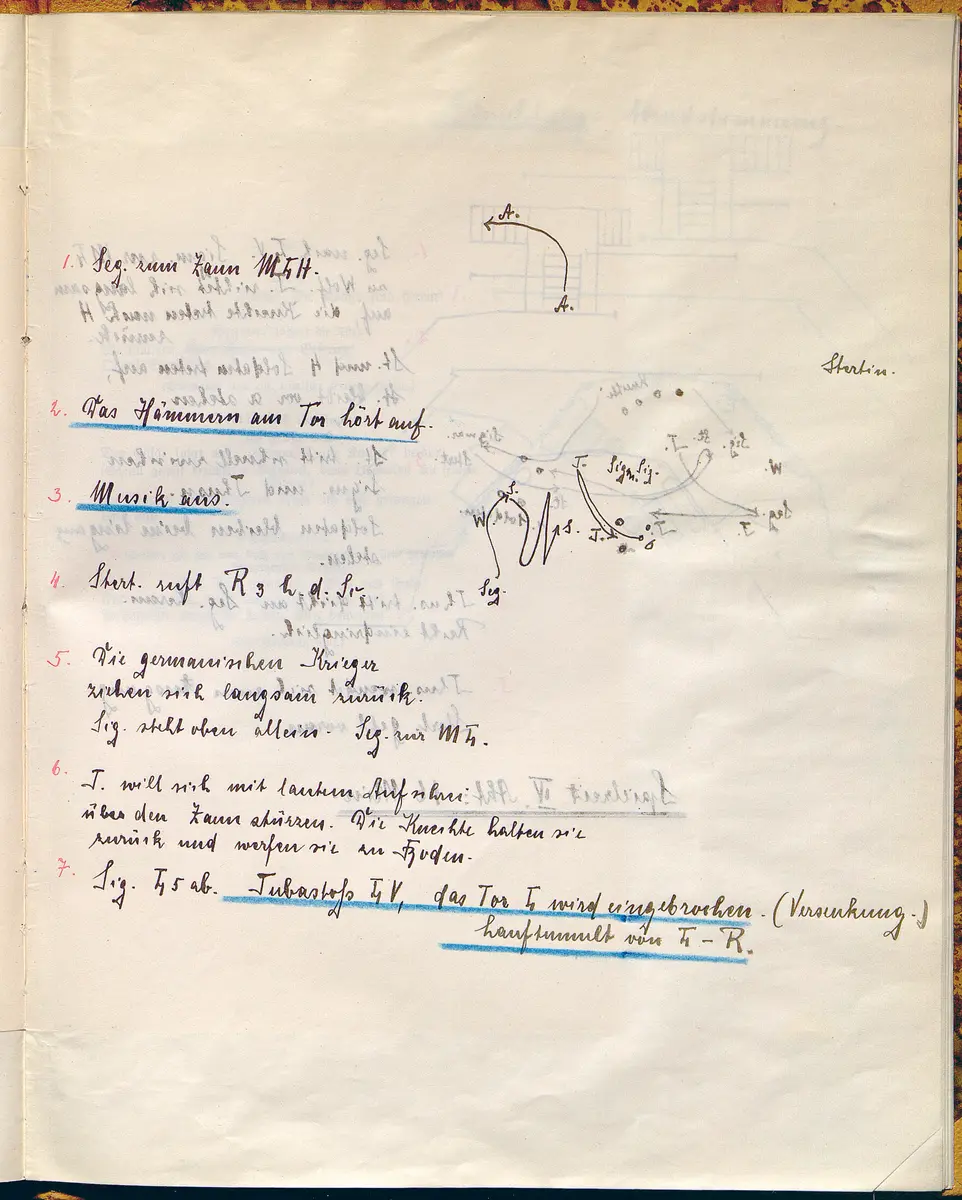 A.
1. Seg. zum Zaun MLH.
A.
Stertin.
2. Das Hämmern am Tor hört auf.
T. Sigm. Sig.
3. Musik aus.
S.
W
S.
T.
4. Stert. ruft R 3 h. d. Sz
Seg.
5. Die germanischen Krieger
ziehen sich langsam zurück.
Sig. steht oben allein. Seg. zur ML.
6. T. will sich mit lautem Aufschrei
über den Zaun stürzen. Die Knechte halten sie
zurück und werfen sie zu Boden.
7. Sig. L 5 ab. Tubastoß L V, das Tor L wird eingebrochen. (Versenkung.)
von L - R.